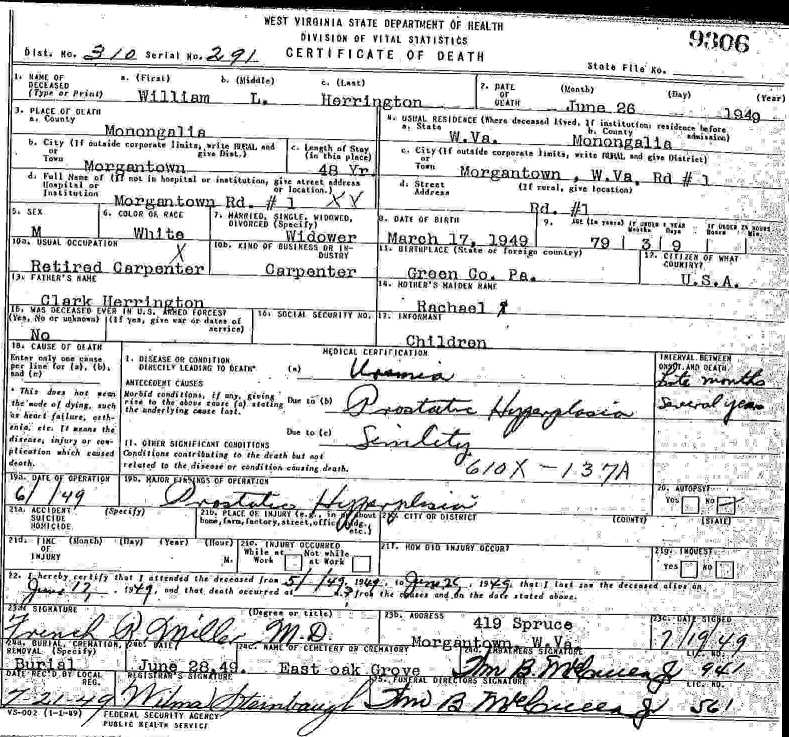 WEST VIRGINIA STATE DEPARTMENT OF HEALTH
DIVISION OF VITAL STATISTICS
CERTIFICATE OF DEATH
9306
Dist. No. 310 Serial No. 291
State File No.
1. NAME OF DECEASED (Type or Print) a. (First) b. (Middle) c. (Last)
William L. Herrington
2. DATE OF DEATH (Month) (Day) (Year)
June 26 1949
3. PLACE OF DEATH
a. County
Monongalia
4. USUAL RESIDENCE (Where deceased lived, If institution: residence before admission)
a. State b. County
W.Va. Monongalia
b. City (If outside corporate limits, write RURAL and give Dist.) or Town
Morgantown
c. Length of Stay (in this place)
48 Yr.
c. City (If outside corporate limits, write RURAL and give District) or Town
Morgantown, W.Va. Rd # 1
d. Full Name of (If not in hospital or institution, give street address or location.) Hospital or Institution
Morgantown Rd. # 1 XX
d. Street Address (If rural, give location)
Rd. #1
5. SEX
M
6. COLOR OR RACE
White
7. MARRIED, SINGLE, WIDOWED, DIVORCED (Specify)
Widower
8. DATE OF BIRTH
March 17, 1949
9. AGE (In years) IF UNDER 1 YEAR Months Days IF UNDER 24 HOURS Hours Min.
79 3 9
10a. USUAL OCCUPATION X
Retired Carpenter
10b. KIND OF BUSINESS OR INDUSTRY
Carpenter
11. BIRTHPLACE (State or foreign country)
Green Co. Pa.
12. CITIZEN OF WHAT COUNTRY?
U.S.A.
13. FATHER'S NAME
Clark Herrington
14. MOTHER'S MAIDEN NAME
Rachael
15. WAS DECEASED EVER IN U.S. ARMED FORCES?
(Yes, No or unknown) (If yes, give war or dates of service)
No
16. SOCIAL SECURITY NO.
17. INFORMANT
Children
18. CAUSE OF DEATH
Enter only one cause per line for (a), (b), and (c)
MEDICAL CERTIFICATION
INTERVAL BETWEEN ONSET AND DEATH
I. DISEASE OR CONDITION DIRECTLY LEADING TO DEATH* (a) Uremia
months
* This does not mean the mode of dying, such as heart failure, asthenia, etc. It means the disease, injury or complication which caused death.
ANTECEDENT CAUSES
Morbid conditions, if any, giving rise to the above cause (a) stating the underlying cause last.
Due to (b) Prostatic Hyperplasia
Several years
Due to (c) Senility
II. OTHER SIGNIFICANT CONDITIONS
Conditions contributing to the death but not related to the disease or condition causing death.
610X - 137A
19a. DATE OF OPERATION
6/1/49
19b. MAJOR FINDINGS OF OPERATION
Prostatic Hyperplasia
20. AUTOPSY?
YES NO
21a. ACCIDENT SUICIDE HOMICIDE (Specify)
21b. PLACE OF INJURY (e.g., in or about home, farm, factory, street, office bldg. etc.)
21c. CITY OR DISTRICT (COUNTY) (STATE)
21d. TIME OF INJURY (Month) (Day) (Year) (Hour) M.
21e. INJURY OCCURRED While at Work Not while at Work
21f. HOW DID INJURY OCCUR?
21g. INQUEST?
YES NO
22. I hereby certify that I attended the deceased from 5/1/49, 1949, to June 26, 1949, that I last saw the deceased alive on
June 17, 1949, and that death occurred at from the causes and on the date stated above.
23a. SIGNATURE (Degree or title)
French R Miller M.D.
23b. ADDRESS
419 Spruce
Morgantown, W.Va.
23c. DATE SIGNED
7/19/49
24a. BURIAL, CREMATION, REMOVAL (Specify)
Burial
24b. DATE
June 28.49.
24c. NAME OF CEMETERY OR CREMATORY
East oak Grove
24d. EMBALMERS SIGNATURE LIC. NO.
941
DATE REC'D. BY LOCAL REG.
7-21-49
REGISTRAR'S SIGNATURE
Wilma Sternbaugh
25. FUNERAL DIRECTORS SIGNATURE LIC. NO.
561
VS-002 (1-1-49) FEDERAL SECURITY AGENCY
PUBLIC HEALTH SERVICE